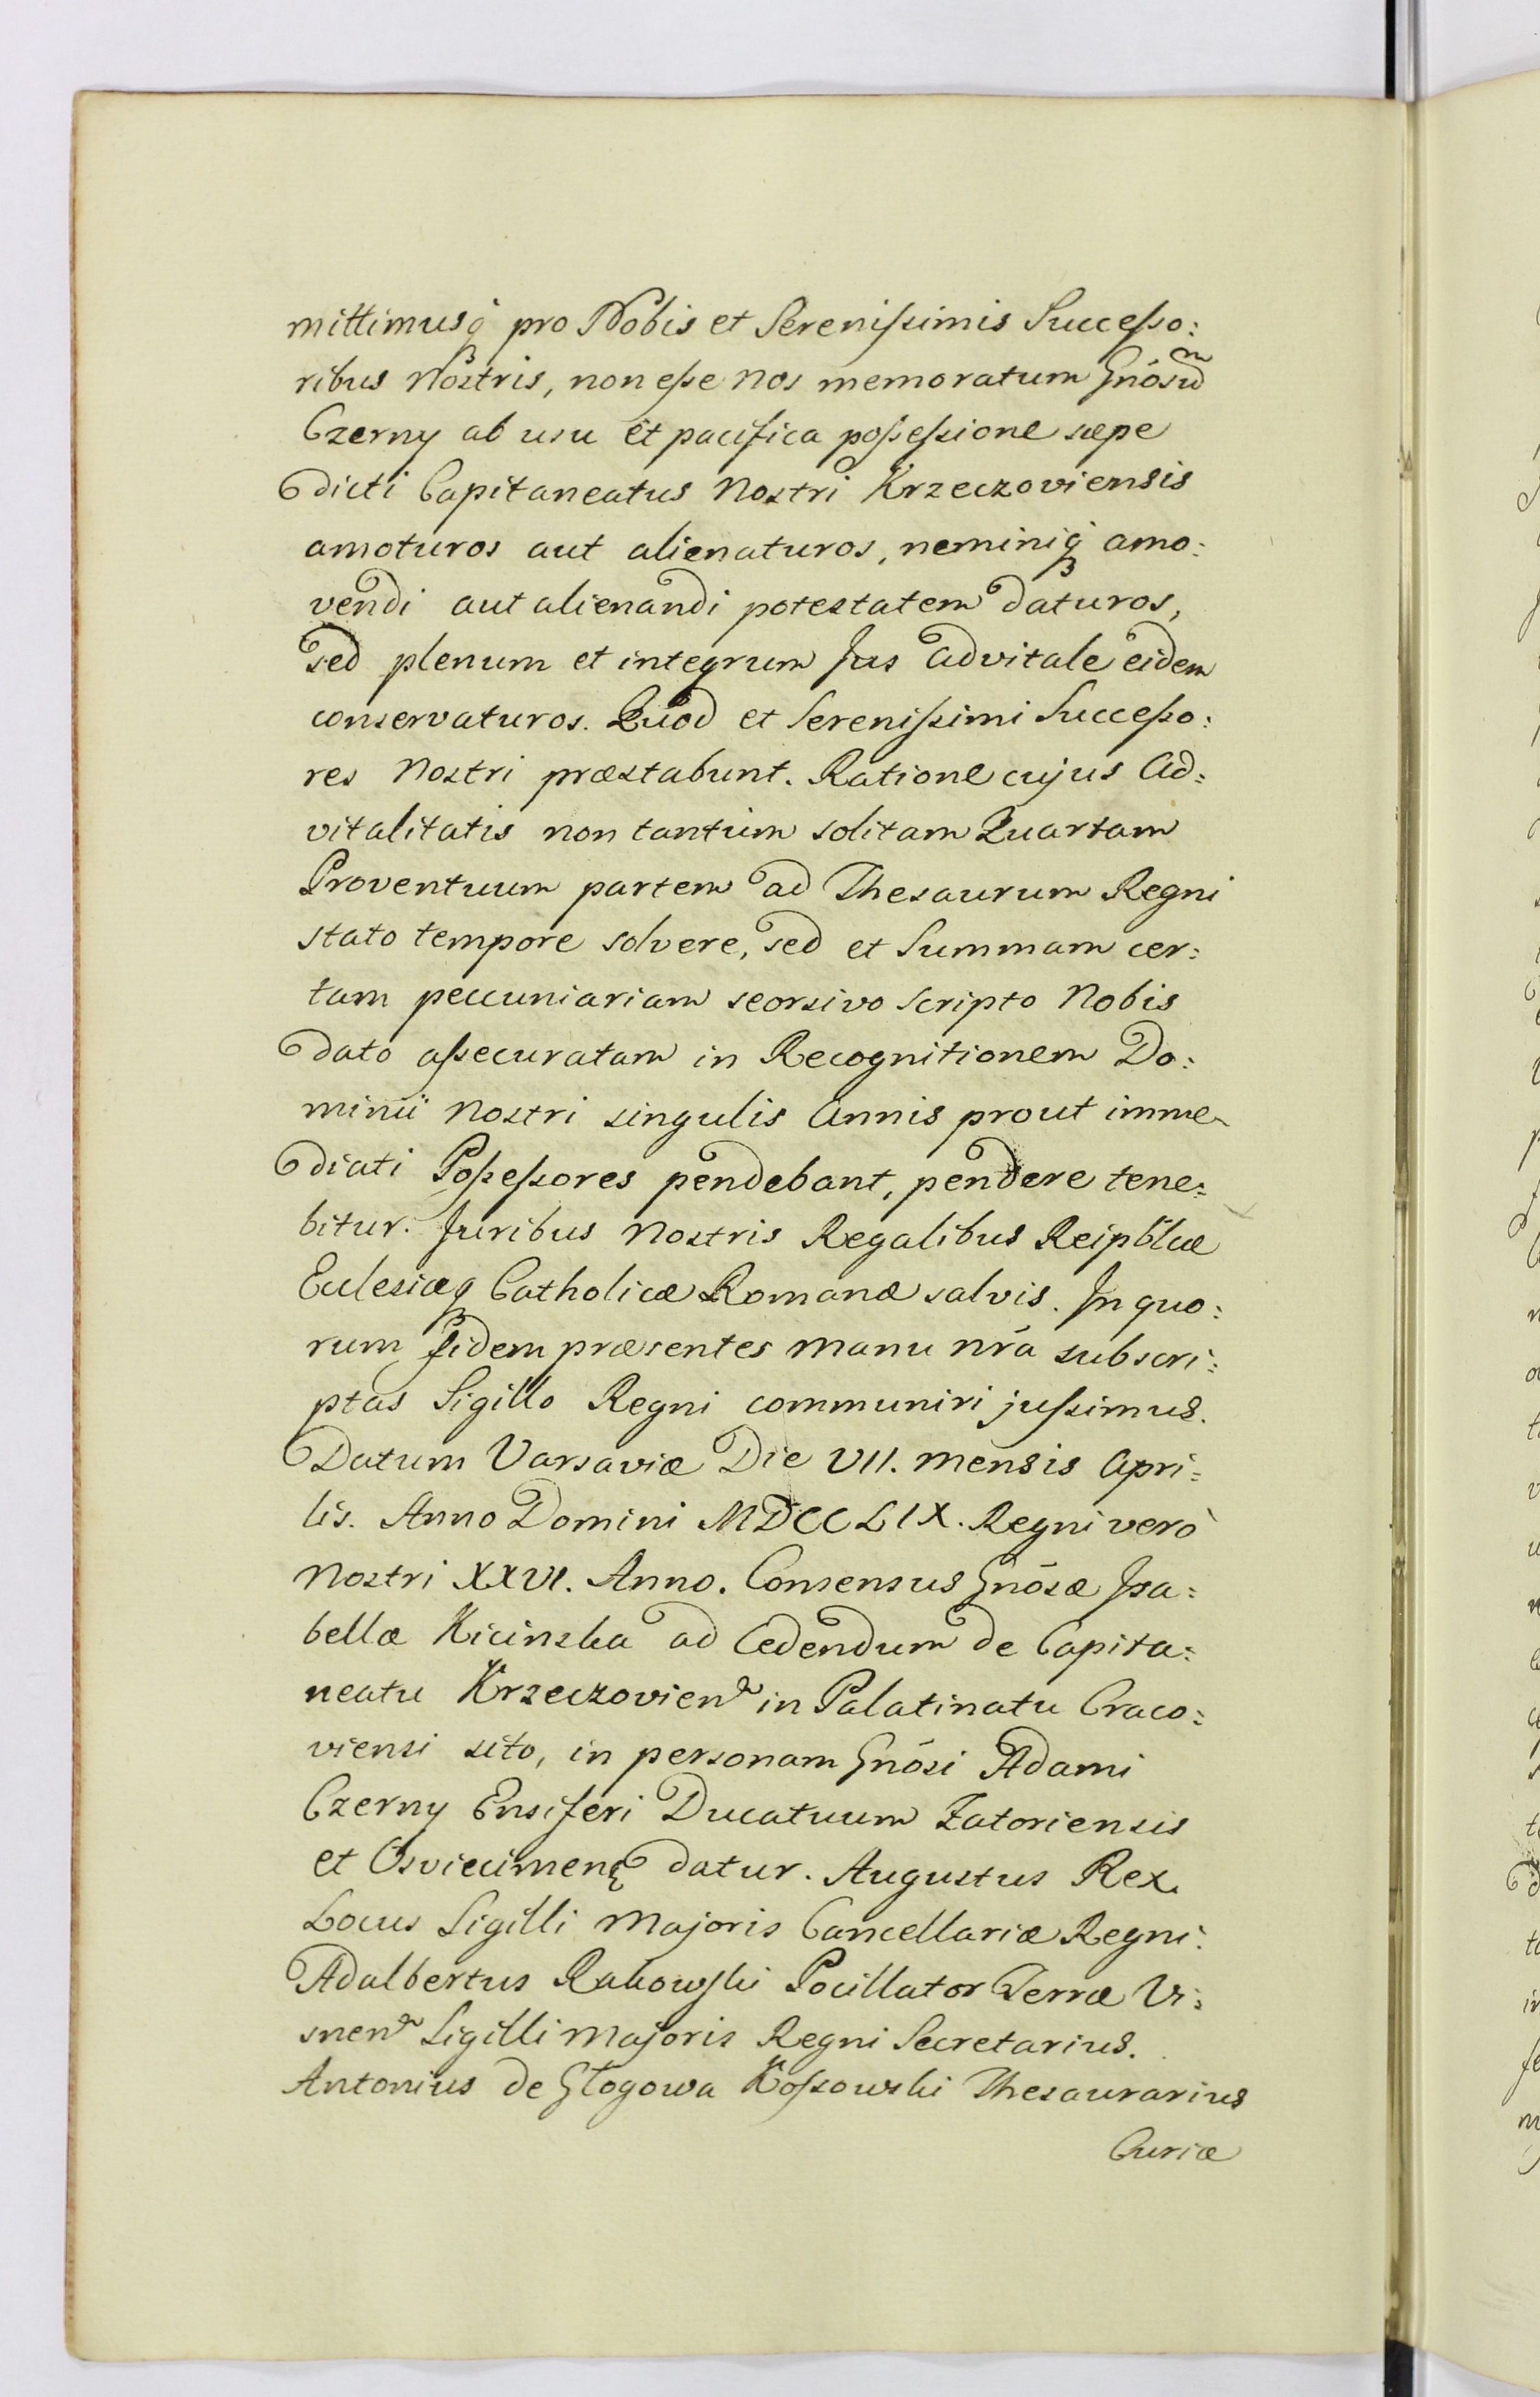 mittimusq́ pro Nobis et Serenißimis Succeßo:
ribus Nostris, non eße Nos memoratum Gnósum
Czerny ab usu et pacifica poßeßione sæpe
dicti Capitaneatus Nostri Krzeczoviensis
amoturos aut alienaturos, neminiq́ amo:
vendi aut alienandi potestatem daturos,
sed plenum et integrum Jus advitale eidem
conservaturos. Quod et Serenißimi Succeßo:
res Nostri præstabunt. Ratione cujus Ad:
vitalitatis non tantùm solitam Quartam
Proventuum partem ad Thesaurum Regni
stato tempore solvere, sed et Summam cer:
tam peccuniariam seorsivo Scripto Nobis
dato aßecuratam in Recognitionem Do:
minii Nostri singulis Annis prout imme-
diati Poßeßores pendebant, pendere tene:
bitur. Juribus Nostris Regalibus Reipblcæ
Ecclesiæq Catholicæ Romanæ salvis. In quo:
rum fidem præsentes Manu nrã subscri:
ptas Sigillo Regni communiri jußimus.
Datum Varsaviæ Die VII. Mensis Apri:
lis. Anno Domini MDCCLIX. Regni verò
Nostri XXVI. Anno. Consensus Gnósæ Isa:
bellæ Kicinska ad Cedendum de Capita:
neatu Krzeczovien in Palatinatu Craco:
viensi sito, in personam Gnósi Adami
Czerny Ensiferi Ducatuum Zatoriensis
et Osviecimen datur. Augustus Rex.
Locus Sigilli Majoris Cancellariæ Regni.
Adalbertus Rakowski Pocillator Terræ Vi:
snen Sigilli Majoris Regni Secretarius.
Antonius de Głogowa Koßowski Thesaurarius
Curiæ